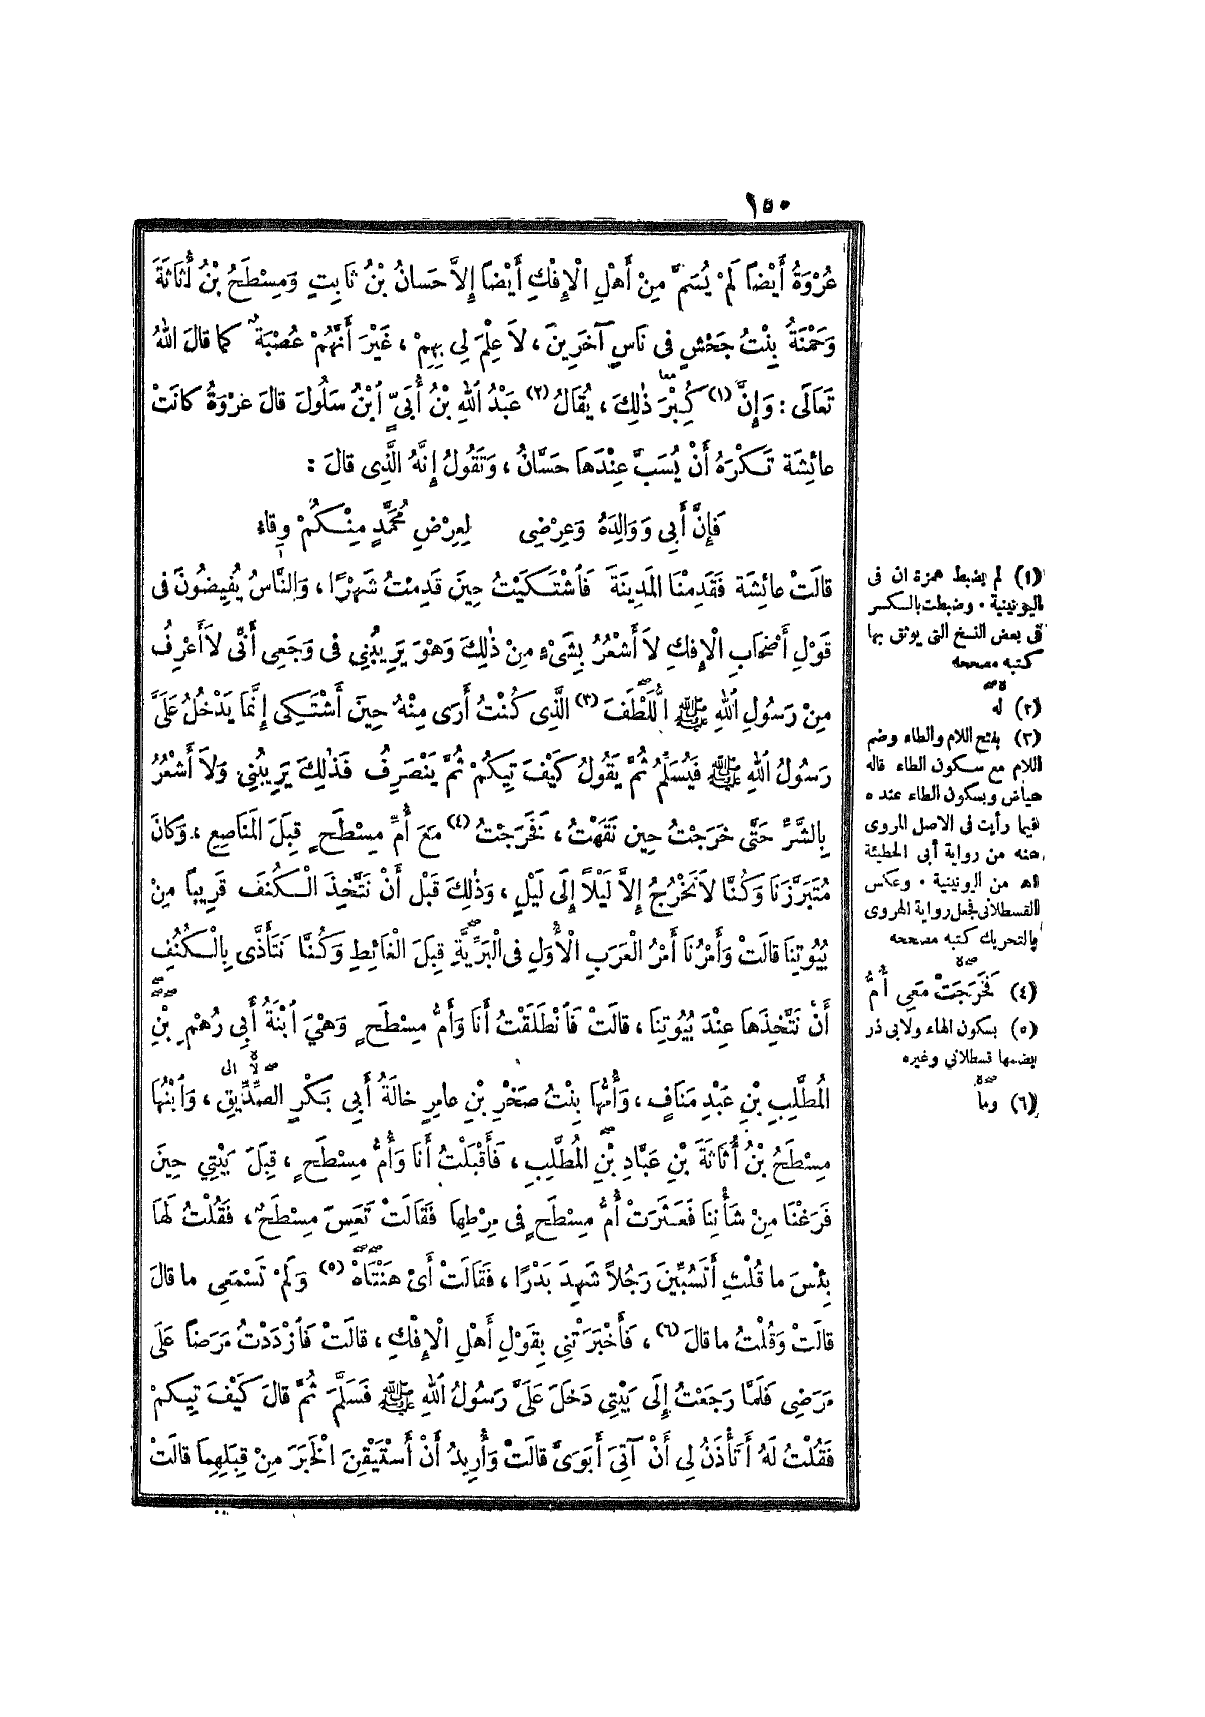 ١٥٠
عُرْوَةُ أَيْضًا لَمْ يُسَمَّ مِنْ أَهْلِ الْإِفْكِ أَيْضًا إِلَّا حَسَانُ بْنُ ثَابِتٍ وَمِسْطَحُ بْنُ أُثَاثَةَ
وَحَمْنَةُ بِنْتُ جَحْشٍ فِي نَاسٍ آخَرِينَ، لَا عِلْمَ لِي بِهِمْ، غَيْرَ أَنَّهُمْ عُصْبَةٌ كما قالَ اللهُ
تَعَالَى: وَإِنَّ (١) كُبْرَ ذٰلِكَ، يُقَالُ (٢) عَبْدُ اللهِ بْنُ أُبَيٍّ ٱبْنُ سَلُولَ قالَ عُرْوَةُ كانَتْ
عائِشَة تَكْرَهُ أَنْ يُسَبَّ عِنْدَهَا حَسَّانُ، وَتَقُولُ إِنَّهُ الَّذِي قالَ:
فَإِنَّ أَبِي وَوَالِدَهُ وَعِرْضِي لِعِرْضِ مُحَمَّدٍ مِنْكُمْ وِقاءُ
قالَتْ عائِشَة فَقَدِمْنَا المَدِينَةَ فَٱشْتَكَيْتُ حِينَ قَدِمْتُ شَهْرًا، وَالنَّاسُ يُفِيضُونَ فِي
قَوْلِ أَصْحَابِ الْإِفْكِ لَا أَشْعُرُ بِشَيْءٍ مِنْ ذٰلِكَ وَهُوَ يَرِيبُنِي فِي وَجَعِي أَنِّي لَا أَعْرِفُ
مِنْ رَسُولِ اللهِ ﷺ اللُّطْفَ (٣) الَّذِي كُنْتُ أَرَى مِنْهُ حِينَ أَشْتَكِي إِنَّمَا يَدْخُلُ عَلَيَّ
رَسُولُ اللهِ ﷺ فَيُسَلِّمُ ثُمَّ يَقُولُ كَيْفَ تِيكُمْ ثُمَّ يَنْصَرِفُ فَذٰلِكَ يَرِيبُنِي وَلَا أَشْعُرُ
بِالشَّرِّ حَتَّى خَرَجْتُ حِينَ نَقَهْتُ، فَخَرَجْتُ (٤) مَعَ أُمِّ مِسْطَحٍ قِبَلَ المَنَاصِعِ، وَكانَ
مُتَبَرَّزَنَا وَكُنَّا لَا نَخْرُجُ إِلَّا لَيْلًا إِلَى لَيْلٍ، وَذٰلِكَ قَبْلَ أَنْ نَتَّخِذَ الْكُنُفَ قَرِيبًا مِنْ
بُيُوتِنَا قالَتْ وَأَمْرُنَا أَمْرُ الْعَرَبِ الْأُوَلِ فِي الْبَرِّيَّةِ قِبَلَ الْغَائِطِ وَكُنَّا نَتَأَذَّى بِالْكُنُفِ
أَنْ نَتَّخِذَهَا عِنْدَ بُيُوتِنَا، قالَتْ فَٱنْطَلَقْتُ أَنَا وَأُمُّ مِسْطَحٍ وَهْيَ ٱبْنَةُ أَبِي رُهْمِ بْنِ
المُطَّلِبِ بْنِ عَبْدِ مَنَافٍ، وَأُمُّهَا بِنْتُ صَخْرِ بْنِ عامِرٍ خالَةُ أَبِي بَكْرٍ الصِّدِّيقِ، وَٱبْنُهَا
مِسْطَحُ بْنُ أُثَاثَةَ بْنِ عَبَّادِ بْنِ المُطَّلِبِ، فَأَقْبَلْتُ أَنَا وَأُمُّ مِسْطَحٍ، قِبَلَ بَيْتِي حِينَ
فَرَغْنَا مِنْ شَأْنِنَا فَعَثَرَتْ أُمُّ مِسْطَحٍ فِي مِرْطِهَا فَقَالَتْ تَعِسَ مِسْطَحٌ، فَقُلْتُ لَهَا
بِئْسَ ما قُلْتِ أَتَسُبِّينَ رَجُلًا شَهِدَ بَدْرًا، فَقَالَتْ أَيْ هَنْتَاهْ (٥) وَلَمْ تَسْمَعِي ما قالَ
قالَتْ وَقُلْتُ ما قالَ (٦)، فَأَخْبَرَتْنِي بِقَوْلِ أَهْلِ الْإِفْكِ، قالَتْ فَٱزْدَدْتُ مَرَضًا عَلَى
مَرَضِي فَلَمَّا رَجَعْتُ إِلَى بَيْتِي دَخَلَ عَلَيَّ رَسُولُ اللهِ ﷺ فَسَلَّمَ ثُمَّ قالَ كَيْفَ تِيكُمْ
فَقُلْتُ لَهُ أَتَأْذَنُ لِي أَنْ آتِيَ أَبَوَيَّ قالَتْ وَأُرِيدُ أَنْ أَسْتَيْقِنَ الْخَبَرَ مِنْ قِبَلِهِمَا قالَتْ
(١) لم يضبط همزة ان في
اليونينية . وضبطت بالكسر
في بعض النسخ التي يوثق بها
كتبه مصححه
(٢) له
(٣) بفتح اللام والطاء وضم
اللام مع سكون الطاء قاله
عياض وبسكون الطاء عنده
فيما رأيت في الاصل المروي
عنه من رواية أبي الحطيئة
اه من اليونينية . وعكس
القسطلاني فجعل رواية الهروي
بالتحريك كتبه مصححه
(٤) فَخَرَجَتْ مَعِي أُمُّ
(٥) بسكون الهاء ولابي ذر
بضمها قسطلاني وغيره
(٦) وما